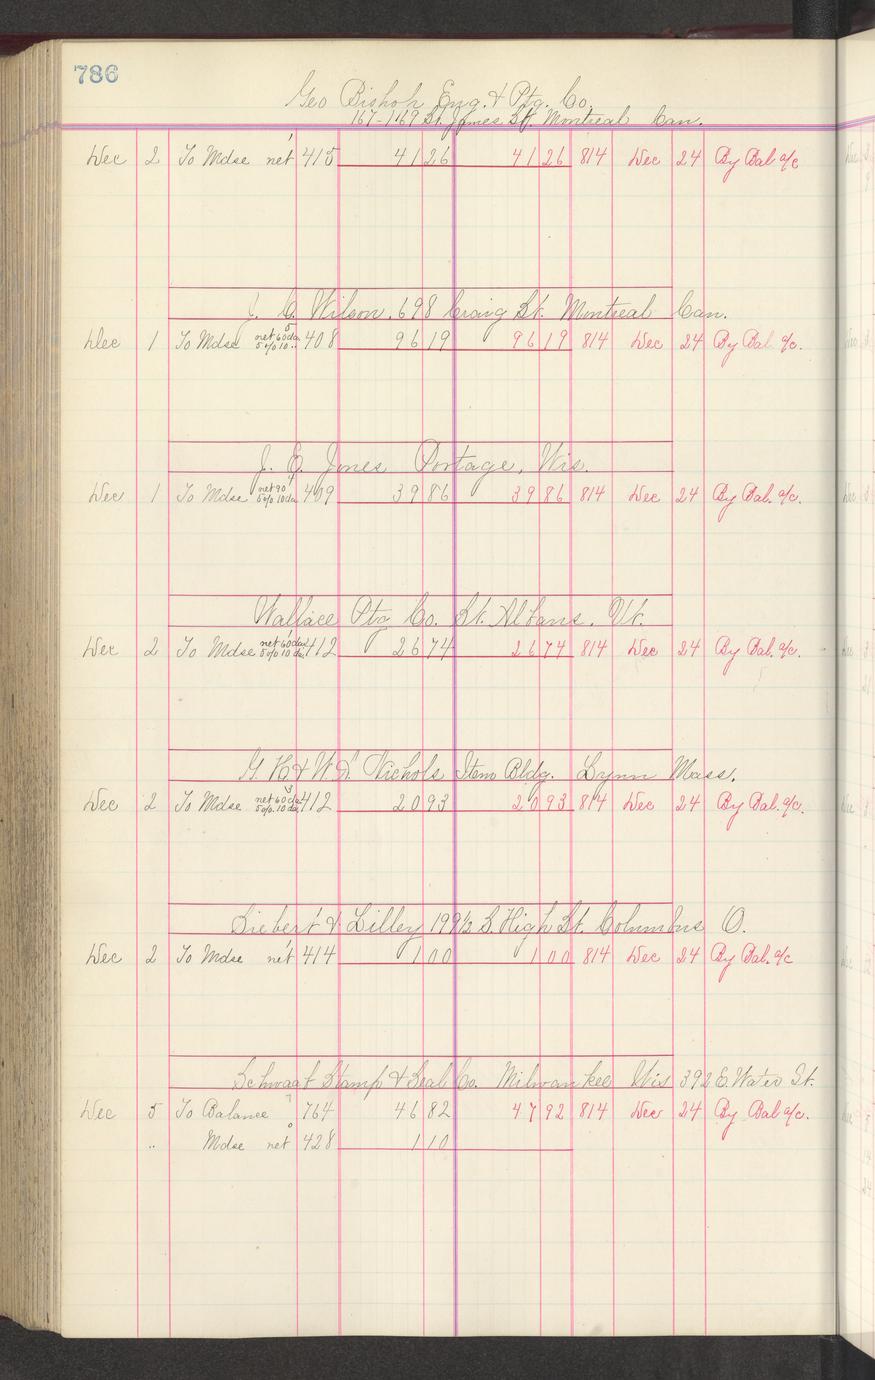 786
Geo Bishop Eng. & Ptg. Co.
167-1169 St. James St. Montreal Can.
Dec 2 To Mdse net 415 41 26 41 26 814 Dec 24 By Bal a/c
J. C. Wilson. 698 Craig St. Montreal Can.
Dec 1 To Mdse net 60 da 5 o/o 10 .. 408 96 19 96 19 814 Dec 24 By Bal a/c.
J. E. Jones Portage, Wis.
Dec 1 To Mdse net 90 5 o/o 10 da 409 39 86 39 86 814 Dec 24 By Bal. a/c.
Wallace Ptg Co. St. Albans. Vt.
Dec 2 To Mdse net 60 da 5 o/o 10 da 412 26 74 26 74 814 Dec 24 By Bal. a/c.
G. H. & W. A. Nichols Item Bldg. Lynn Mass.
Dec 2 To Mdse net 60 da 5 o/o. 10 da. 412 20 93 20 93 814 Dec 24 By Bal. a/c.
Siebert & Lilley 199 1/2 S. High St. Columbus O.
Dec 2 To Mdse net 414 1 00 1 00 814 Dec 24 By Bal. a/c
Schwaaf Stamp & Seal Co. Milwaukee Wis 392 E. Water St.
Dec 5 To Balance 764 46 82 47 92 814 Dec 24 By Bal a/c.
.. Mdse net 428 1 10